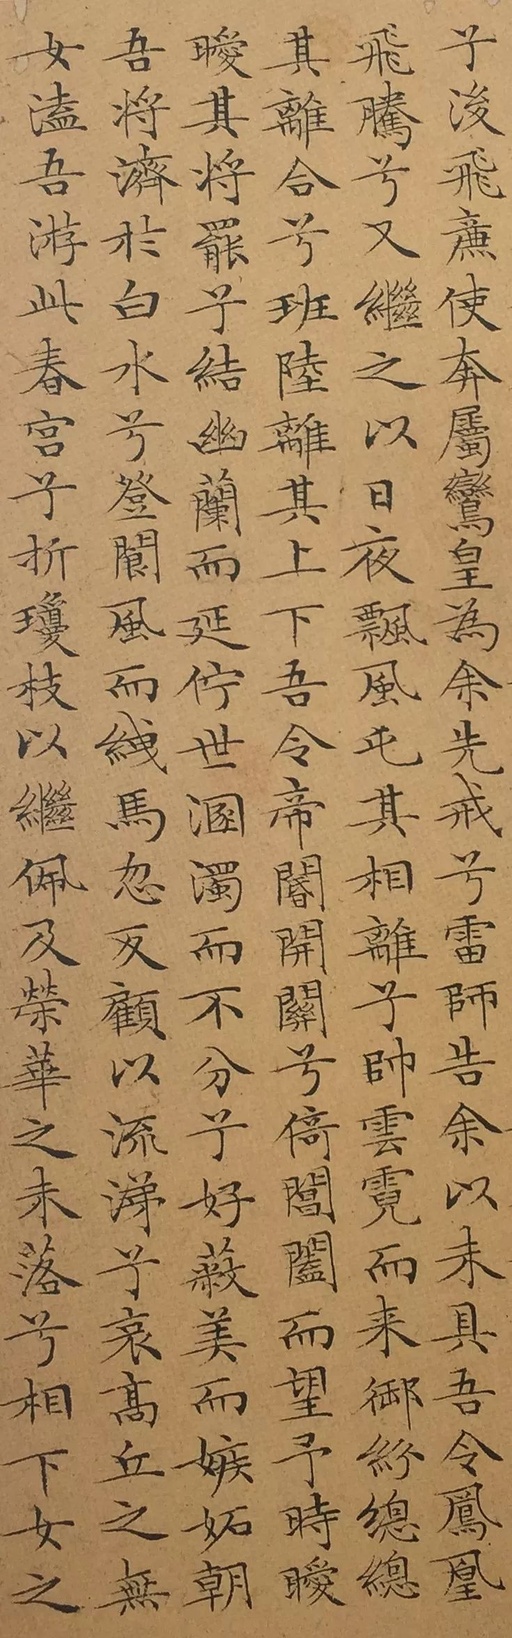 兮後飛廉使奔屬鸞皇為余先戒兮雷師告余以未具吾令鳳凰
飛騰兮又繼之以日夜飄風屯其相離兮帥雲霓而来御紛總總
其離合兮班陸離其上下吾令帝閽開關兮倚閶闔而望予時曖
曖其将罷兮結幽蘭而延佇世溷濁而不分兮好蔽美而嫉妬朝
吾将濟於白水兮登閬風而緤馬忽反顧以流涕兮哀髙丘之無
女溘吾游此春宫兮折瓊枝以繼佩及榮華之未落兮相下女之